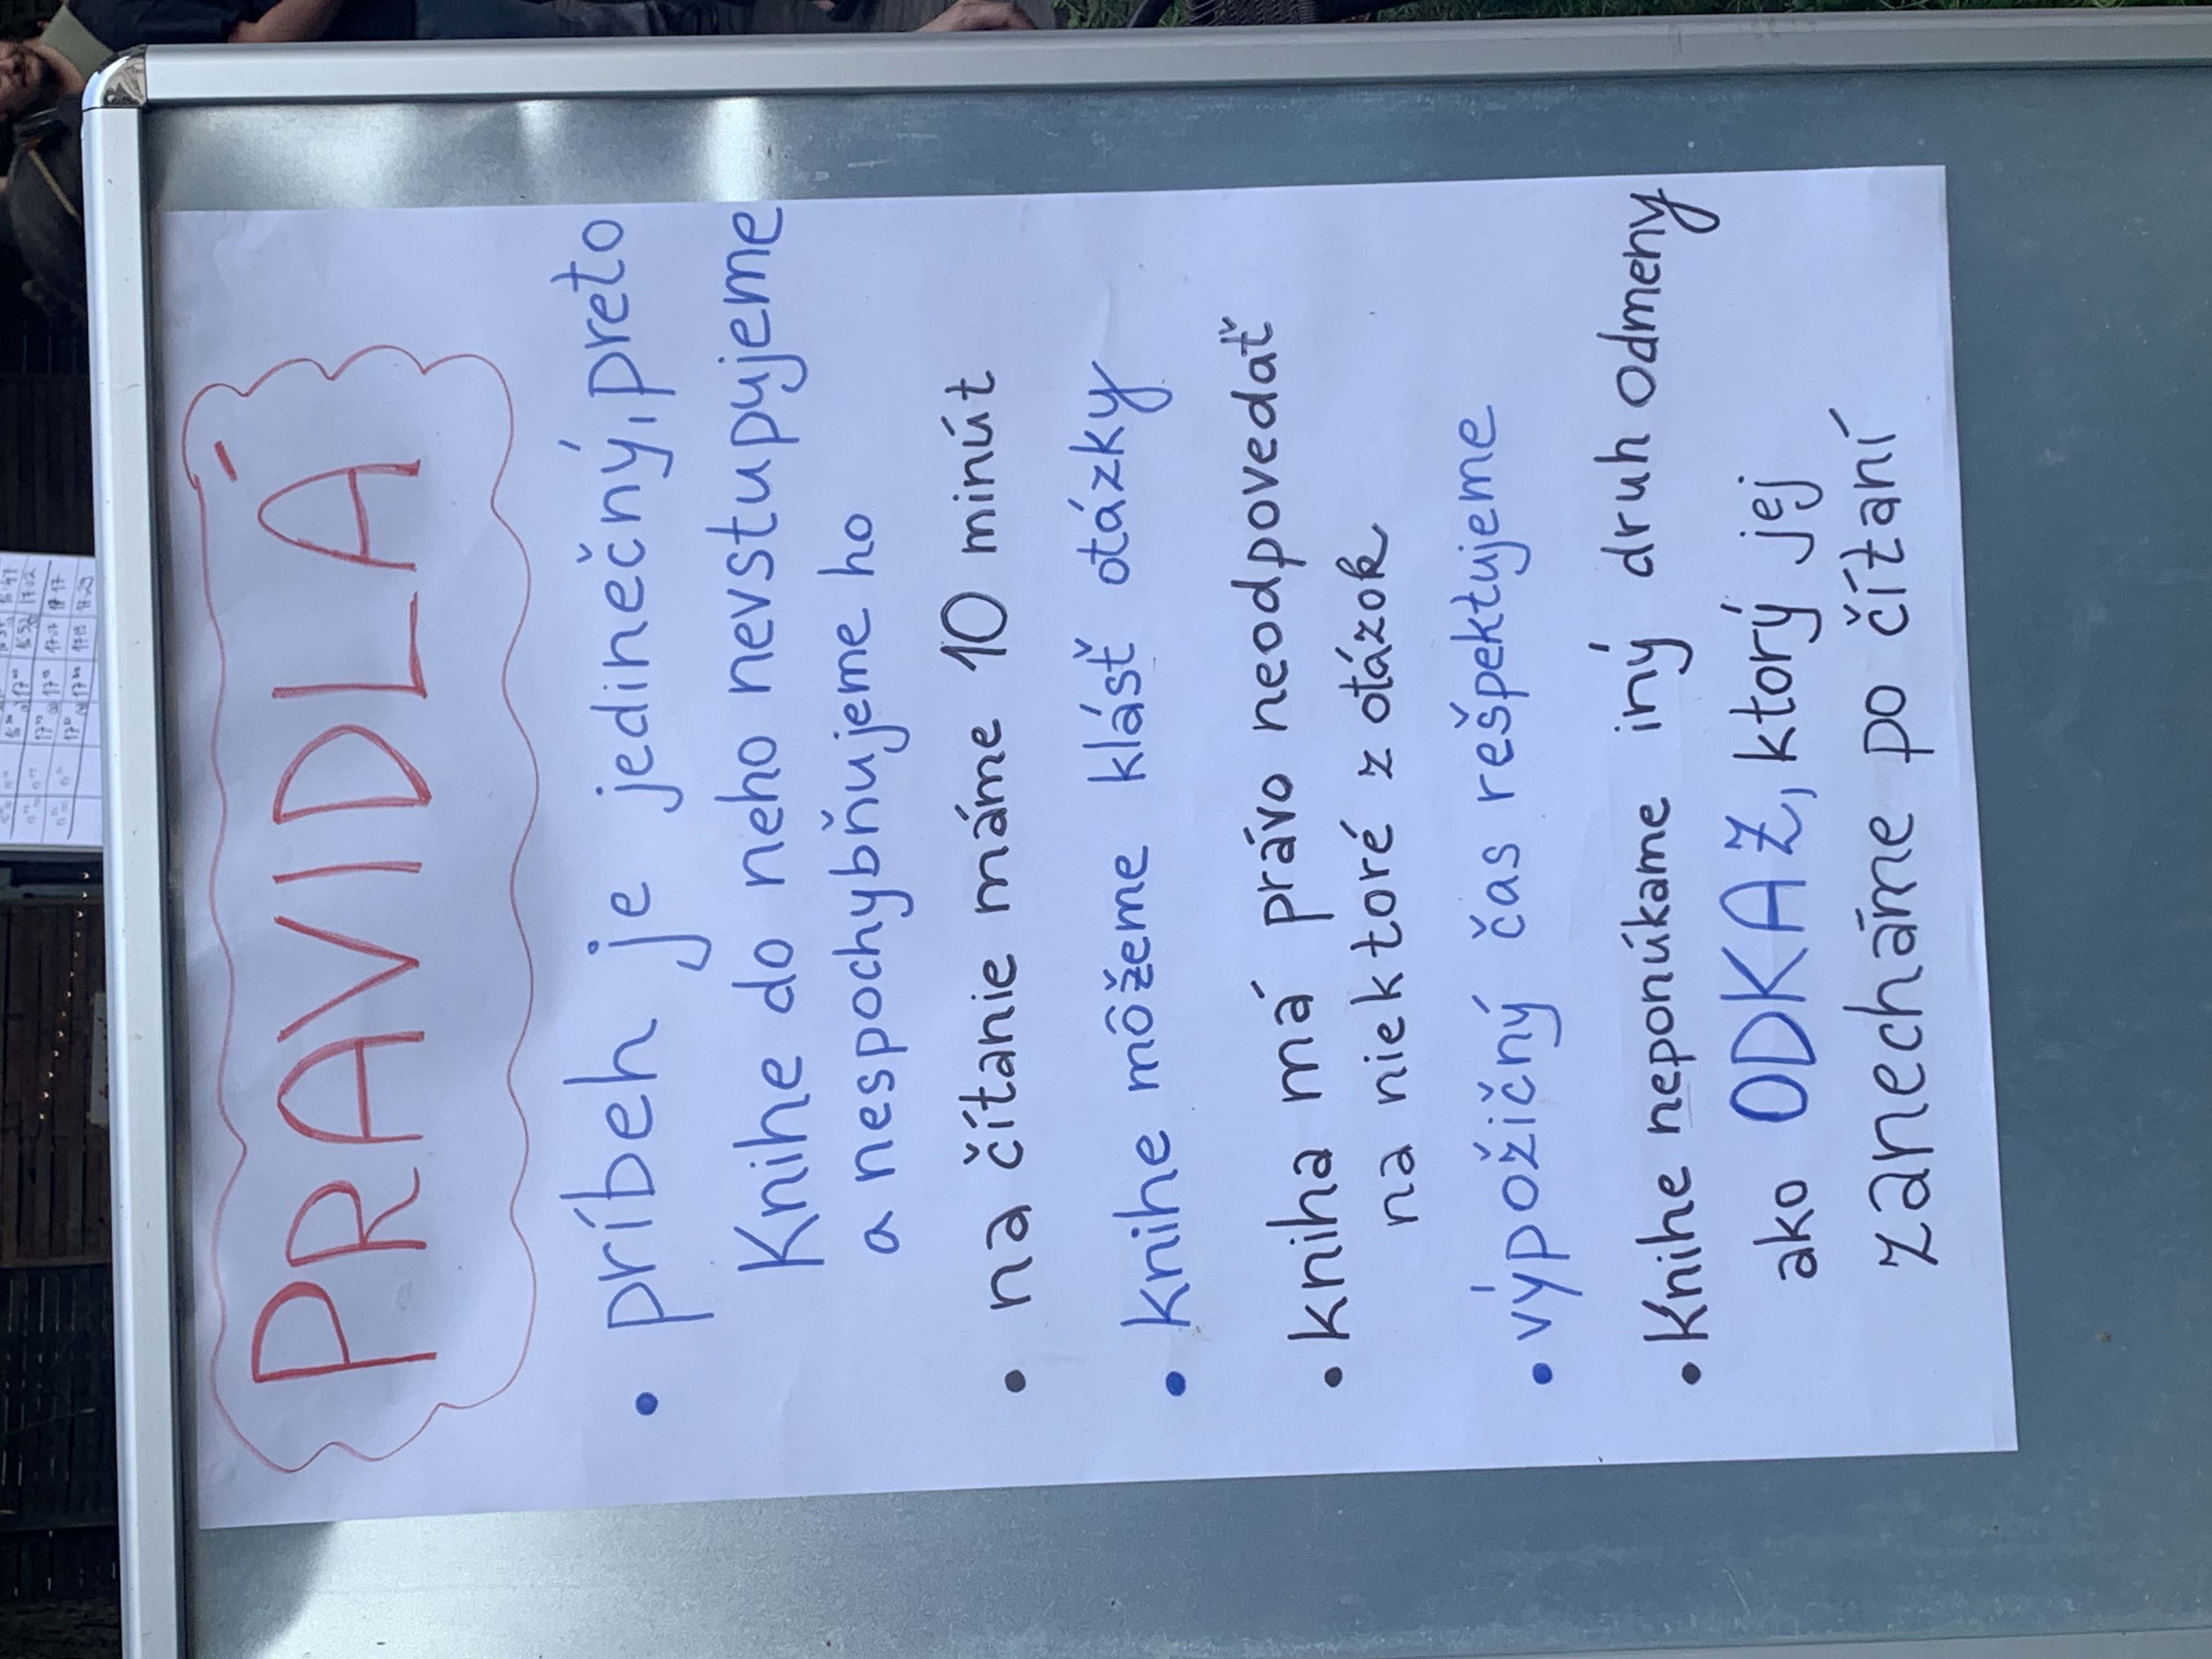 PRAVIDLÁ
• príbeh je jedinečný, preto
Knihe do neho nevstupujeme
a nespochybňujeme ho
• na čítanie máme 10 minút
• knihe môžeme klásť otázky
• kniha má právo neodpovedať
na niektoré z otázok
• výpožičný čas rešpektujeme
• Knihe neponúkame iný druh odmeny
ako ODKAZ, ktorý jej
zanecháme po čítaní
17:02
17:17